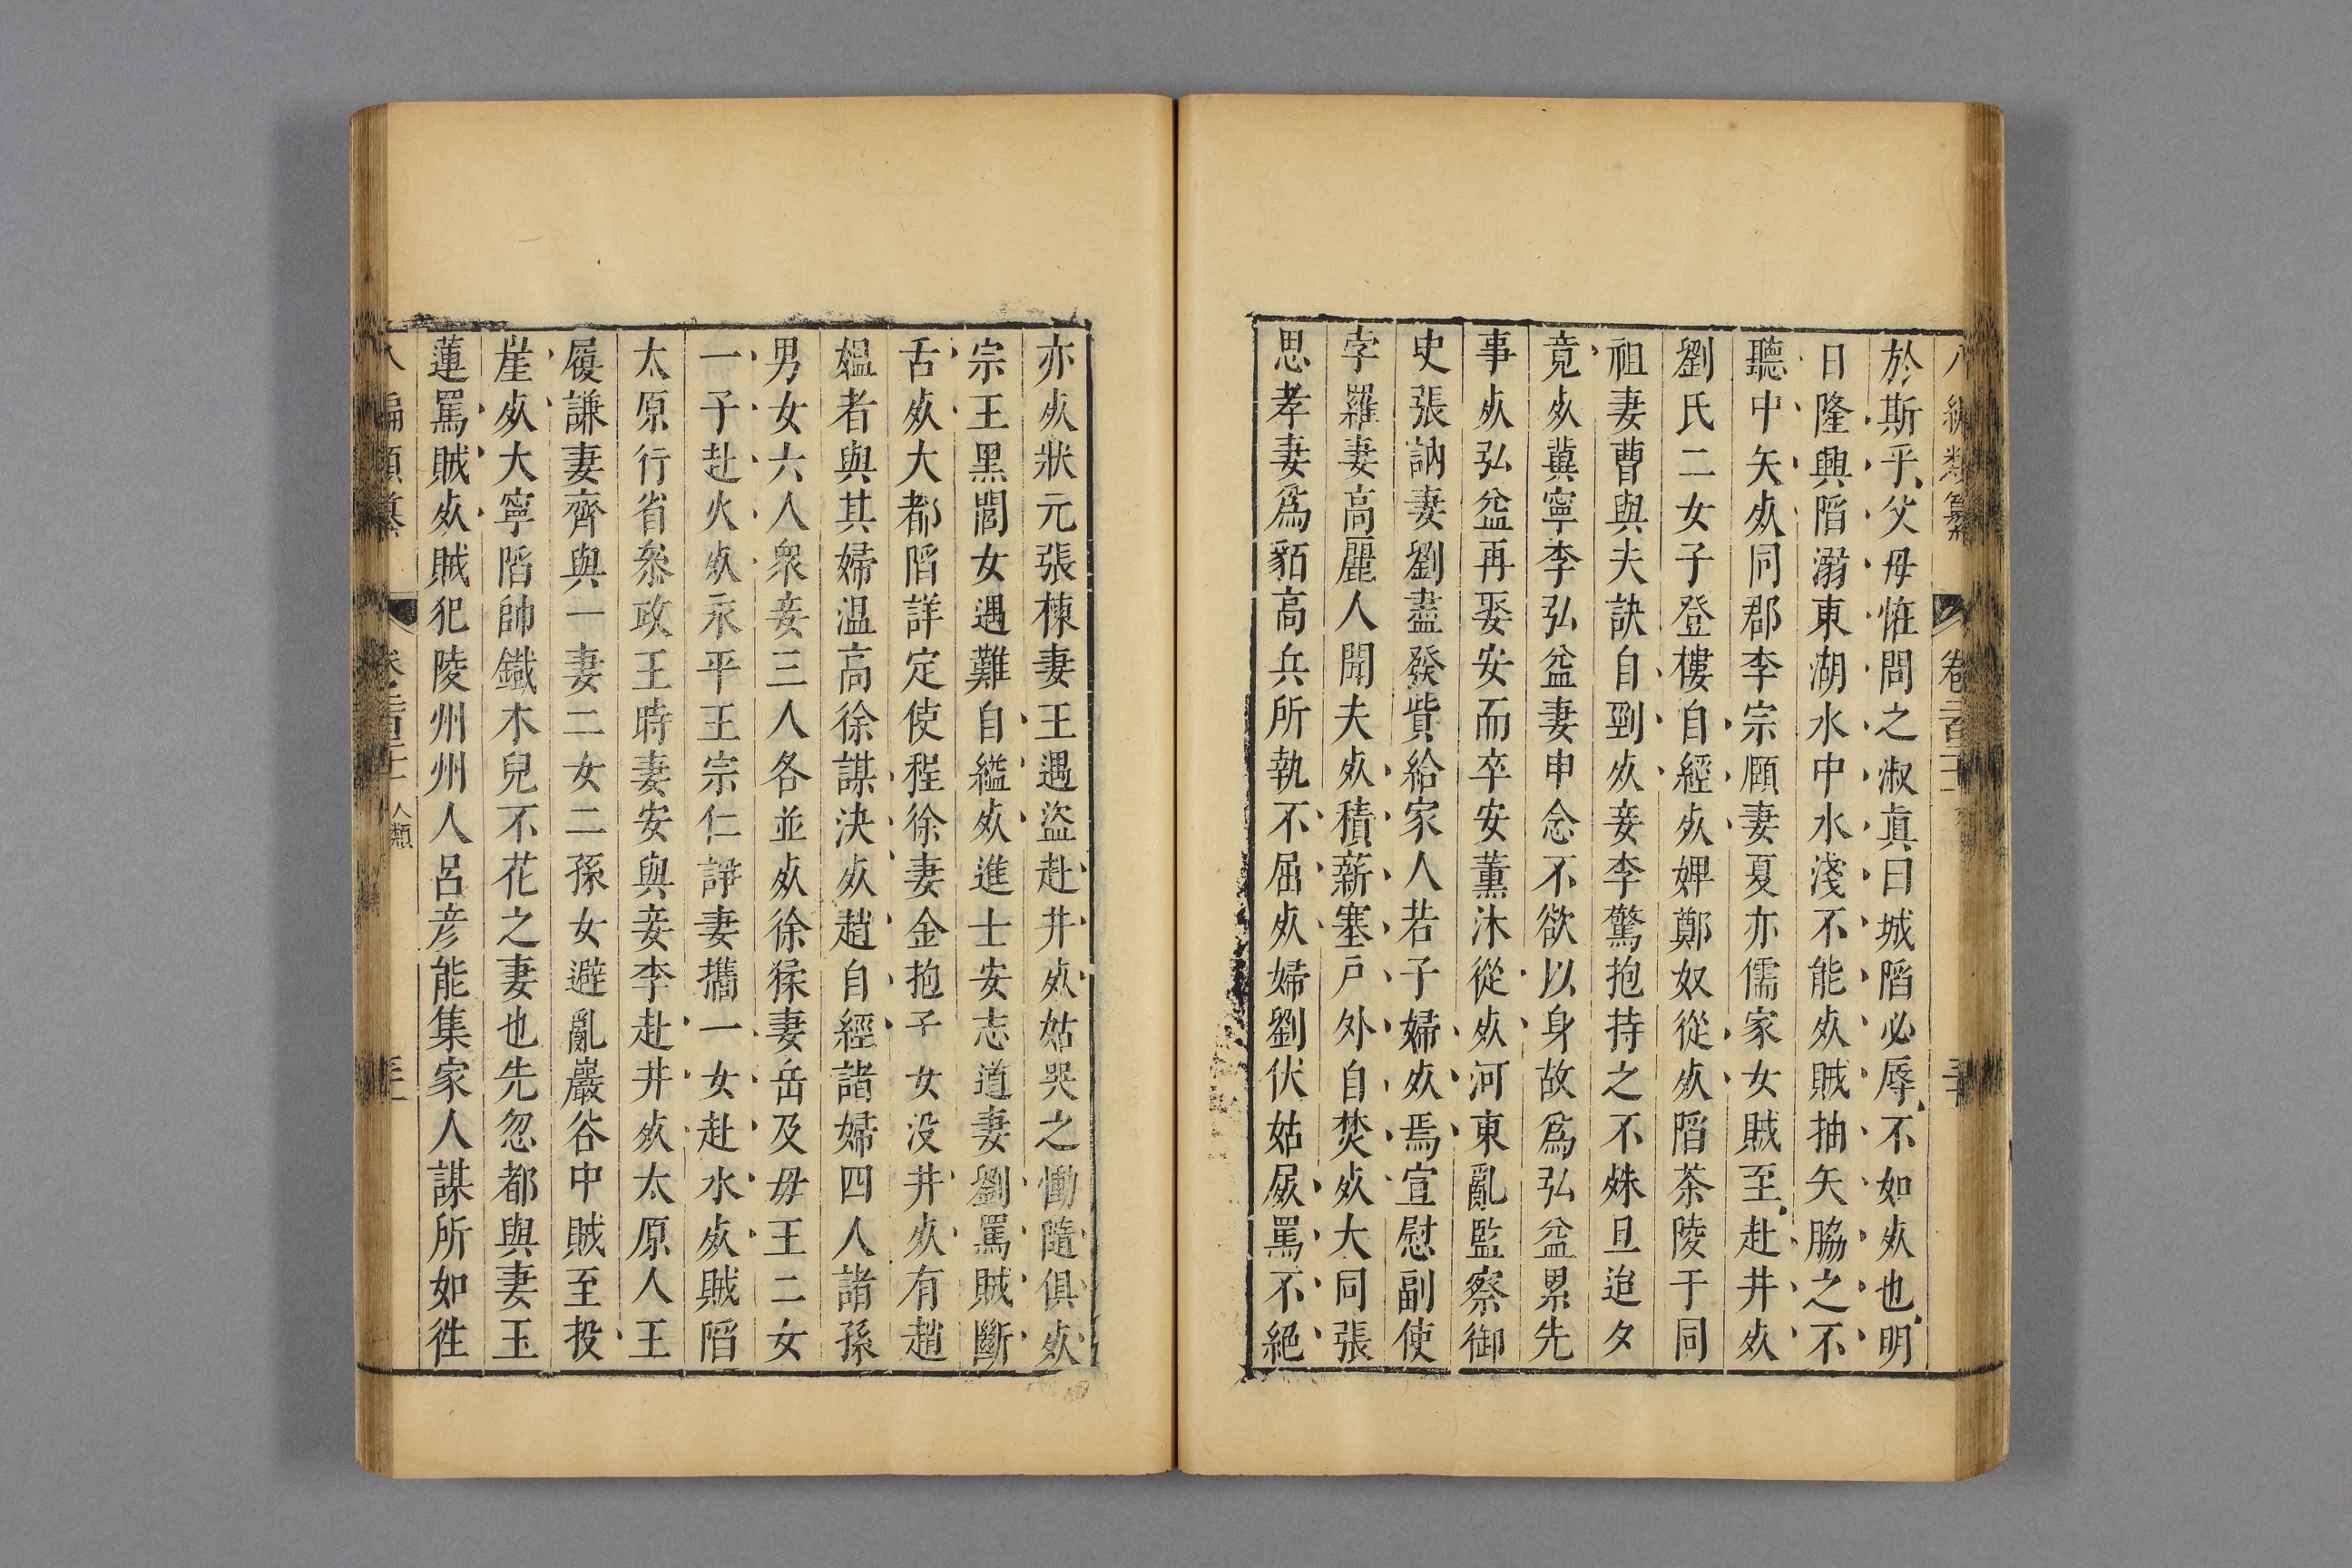 八編類纂 卷二百三十
於斯乎父母恠問之淑真曰城陷必辱不如死也明
日隆興陷溺東湖水中水淺不能死賊抽矢脇之不
聽中矢死同郡李宗頤妻夏亦儒家女賊至赴井死
劉氏二女子登樓自經死婢鄭奴從死陷茶陵于同
祖妻曹與夫訣自剄死妾李驚抱持之不殊旦迨夕
竟死冀寧李弘益妻申念不欲以身故爲弘益累先
事死弘益再娶安而卒安薰沐從死河東亂監察御
史張訥妻劉盡發貲給家人若子婦死焉宣慰副使
孛羅妻高麗人聞夫死積薪塞戸外自焚死大同張
思孝妻爲貊高兵所執不屈死婦劉伏姑屍罵不絕
亦死狀元張棟妻王遇盜赴井死姑哭之慟隨俱死
宗王黑閭女遇難自縊死進士安志道妻劉罵賊斷
舌死大都陷詳定使程徐妻金抱子女没井死有趙
媼者與其婦温高徐謀決死趙自經諸婦四人諸孫
男女六人衆妾三人各並死徐猱妻岳及母王二女
一子赴火死永平王宗仁諍妻攜一女赴水死賊陷
太原行省叅政王時妻安與妾李赴井死太原人王
履謙妻齊與一妻二女二孫女避亂巖谷中賊至投
崖死大寧陷帥鐵木兒不花之妻也先忽都與妻玉
蓮罵賊死賊犯陵州州人呂彦能集家人謀所如徃
八編類纂 人類